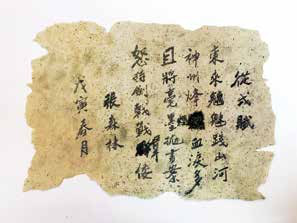 從戎賦
東來魍魎踐山河
神州烽血淚多
且將毫墨拋書案
怒戟戰倭
張森林
戊寅春月